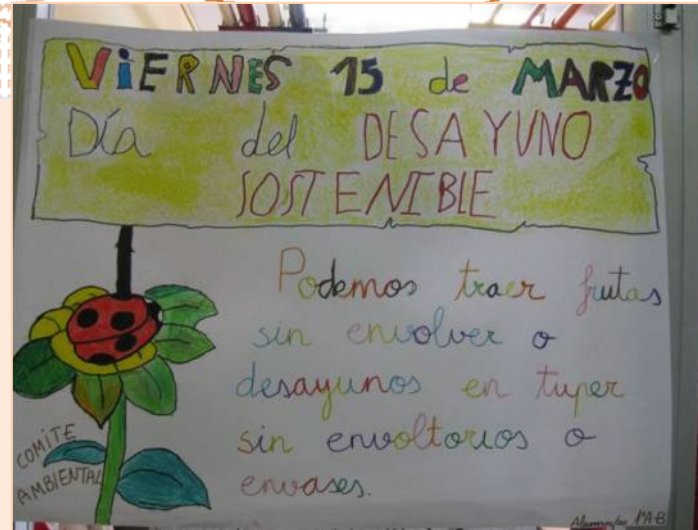 ViERNES 15 de MARZO
Día del DESAYUNO
SOSTENIBLE
Podemos traer frutas
sin envolver o
desayunos en tuper
sin envoltorios o
envases.
COMITE
AMBIENTAL
1ºA-B